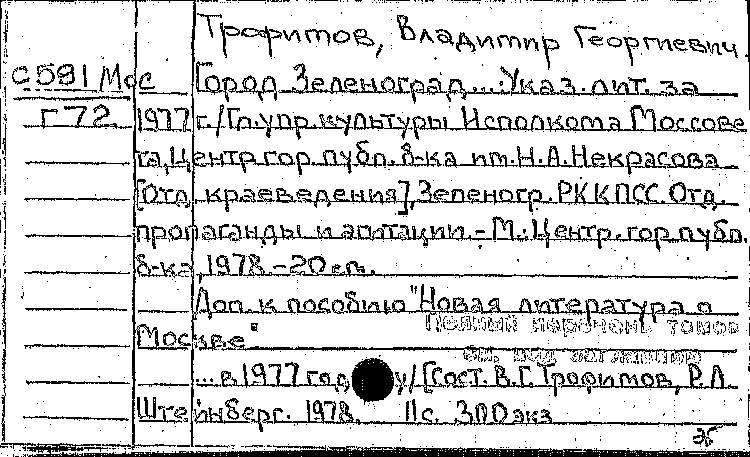 Трофимов, Владимир Георгиевич.
С591/Мос Город Зеленоград...: Указ. лит. за
Г72 1977 г./Гл. упр. культуры Исполкома Моссове
та, Центр. гор. публ. б-ка им. Н.А. Некрасова
[Отд. краеведения], Зеленогр. РК КПСС. Отд.
пропаганды и агитации. - М.: Центр. гор. публ.
б-ка, 1978 - 20 см.
Доп. к пособию "Новая литература о
Полный перечень томов
Москве"
см. под заглавием
...в 1977 году/[Сост. В.Г. Трофимов, Р.Л.
Штейнберг. 1978. 11 с. 300 экз